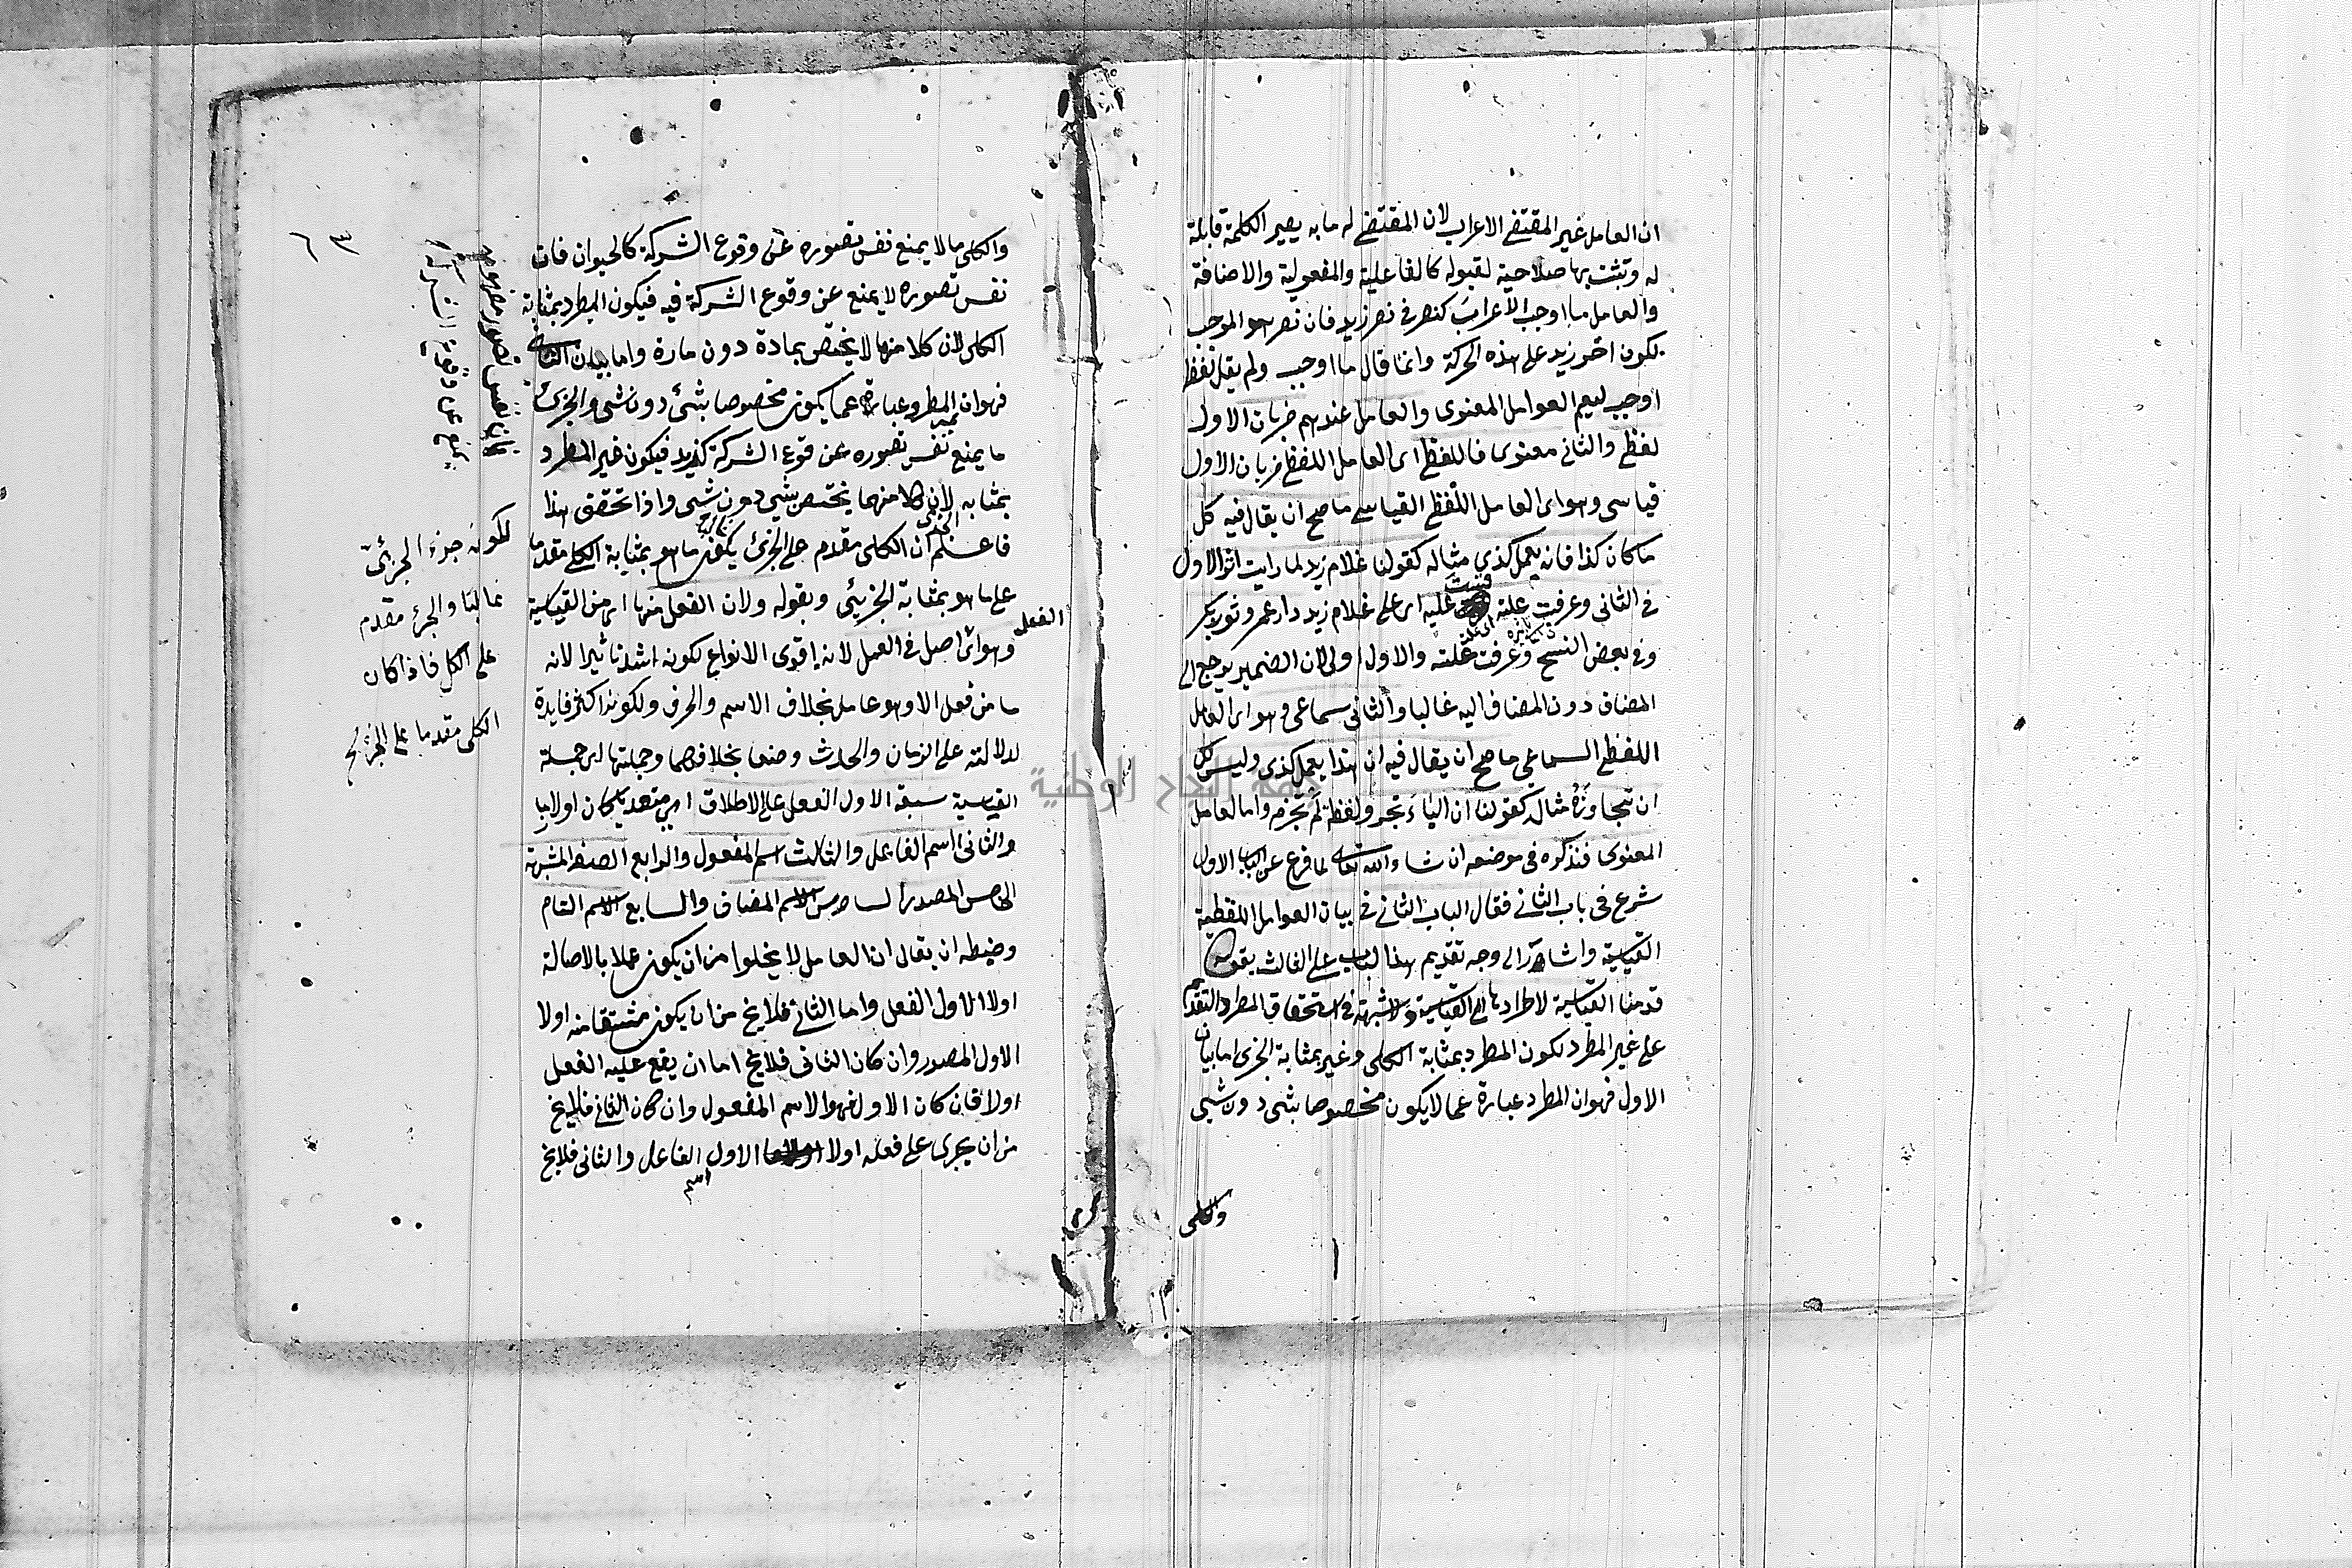 ان العامل غير المقتضى الاعراب لان المقتضى له ما به يصير الكلمة قابلة
له وتثبت بها صلاحية لقبوله كالفاعلية والمفعولية والاضافة
والعامل ما اوجب الاعراب كنصر في نصر زيد فان نصر هو الموجب
لكون اخر زيد على هذه الحركة وانما قال ما اوجب ولم يقل لفظ
اوجب ليعم العوامل المعنوى والعامل عندهم ضربان الاول
لفظى والثانى معنوى فاللفظى اى العامل اللفظى ضربان الاول
قياسى وهو اى العامل اللفظى القياسى ما صح ان يقال فيه كل
ما كان كذا فانه يعمل كذى مثاله كقولنا غلام زيد لما رايت اثر الاول
فى الثانى وعرفت علته قست عليه اى على غلام زيد دار عمر وثوب بكر
وفى بعض النسخ وعرفت علته والاول اولى لان الضمير يرجع الى
المضاف دون المضاف اليه غالبا والثانى سماعى وهو اى العامل
اللفظى السماعى ما صح ان يقال فيه ان هذا يعمل كذى وليس لك
ان تتجاوزه مثاله كقولنا ان الباء تجر ولفظ لم تجزم واما العامل
المعنوى فنذكره فى موضعه ان شاء الله تعالى لما فرغ عن الباب الاول
شرع فى باب الثانى فقال الباب الثانى فى بيان العوامل اللفظية
القياسية واشارة الى وجه تقديم هذا الباب على الثالث بقوله
قدمنا القياسية لاطرادها اى القياسية ولا شبهة فى استحقاق المطرد التقدم
على غير المطرد لكون المطرد بمثابة الكلى وغير بمثابة الجزى اما بيان
الاول فهو ان المطرد عبارة عما لا يكون مخصوصا بشى دون شيى
والكلى
والكلى ما لا يمنع نفس تصوره عن وقوع الشركة كالحيوان فان
نفس تصوره لا يمنع عن وقوع الشركة فيه فيكون المطرد بمثابة
الكلى لان كلا منها لا يختص بمادة دون مادة واما بيان الثانى
فهو ان غير المطرد عبارة عما يكون مخصوصا بشئ دون شى والجزئ
ما يمنع نفس تصوره عن وقوع الشركة كزيد فيكون غير المطرد
بمثابه الجزئى لان كلا منهما يختص بشيى دون شيى واذا تحقق هذا
فاعلم ان الكلى مقدم على الجزئ يكون ما هو بمثابة الكلى مقدما
على ما هو بمثابة الجزيئى وبقوله ولان الفعل منها اى من القياسية
الفعل
وهو اى اصل فى العمل لانه اقوى الانواع لكونه اشد تاثيرا لانه
ما من فعل الا وهو عامل بخلاف الاسم والحرف ولكونه اكثر فايدة
لدلالته على الزمان والحدث وضعا بخلافهما وجملتها اى جملة
القياسية سبعة الاول الفعل على الاطلاق اى متعديا كان او لازما
والثانى اسم الفاعل والثالث اسم المفعول والرابع الصفة المشبهة
الخامس المصدر السادس الاسم المضاف والسابع الاسم التام
وضبطه ان يقال ان العامل لا يخلوا من ان يكون عملا بالاصالة
اولا الاول الفعل واما الثانى فلايخ من ان يكون مشتقا منه اولا
الاول المصدر وان كان الثانى فلايخ اما ان يقع عليه الفعل
اولا فان كان الاول فهو الاسم المفعول وان كان الثانى فلايخ
من ان يجرى على فعله اولا الاول اسم الفاعل والثانى فلايخ
لكونه جزء الجزئى
غالبا والجزء مقدم
على الكل فاذا كان
الكلى مقدما على الجزئى